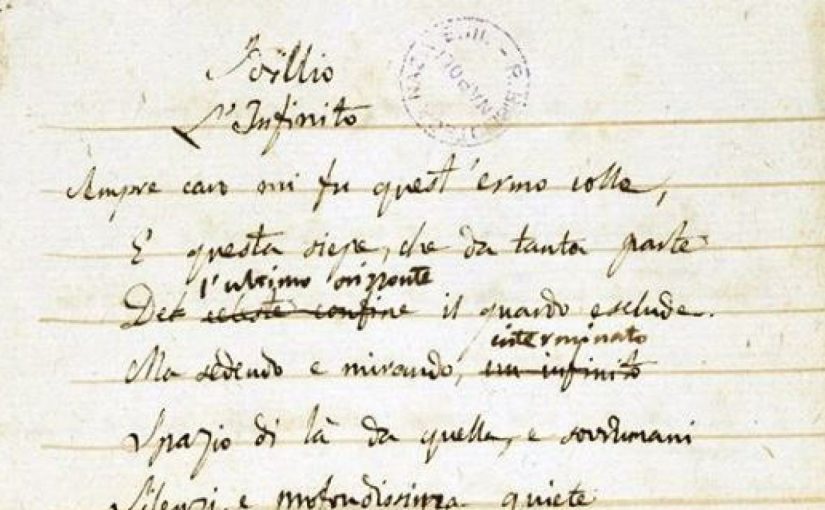 Idillio
L'Infinito
NAPOLI
Sempre caro mi fu quest'ermo colle,
E questa siepe, che da tanta parte
l'ultimo orizzonte
Del celeste confine il guardo esclude.
interminato
Ma sedendo e mirando, un infinito
Spazio di là da quella, e sovrumani
Silenzi, e profondissima quiete